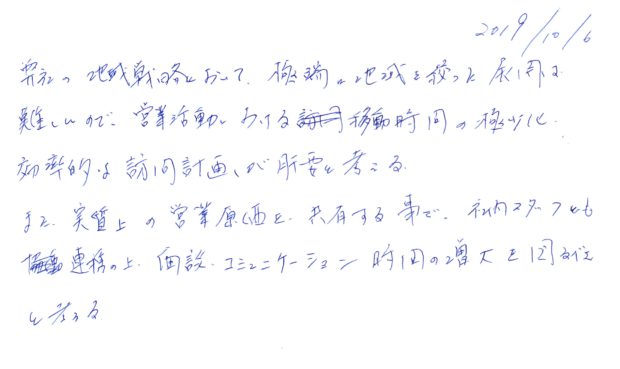 2019/10/6
弊社の地域戦略において、極端に地域を絞った展開は
難しいので、営業活動における移動時間の極少化、
効率的な訪問計画、が肝要と考える。
また、実質上の営業原価を、共有する事で、社内スタッフとも
連携の上、面談、コミュニケーション時間の増大を図るべき
と考える